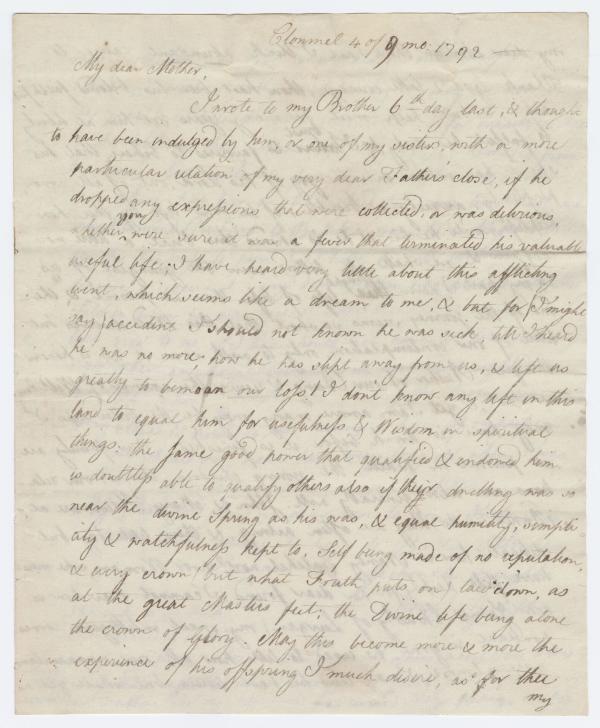 Clonmel 4 of 9 mo: 1792
My dear Mother,
I wrote to my Brother 6th day last, & thought
to have been indulged by him, or one of my sisters, with a more
particular relation of my very dear Father's close, if he
dropped any expressions that were collected, or was delirious,
whether you were sure it was a fever that terminated his valuable
useful life. I have heard very little about this afflicting
event, which seems like a dream to me, & but for (I might
say) accident I should not known he was sick, till I heard
he was no more; how he has slipt away from us, & left us
greatly to bemoan our loss! I don't know any left in this
land to equal him for usefulness & Wisdom in spiritual
things: the same good power that qualified & endowed him
is doubtless able to qualify others also if their dwelling was as
near the divine Spring as his was, & equal humility, simpli-
city & watchfulness kept to, Self being made of no reputation,
& every crown (but what Truth puts on) laid down, as
at the great Master's feet; the Divine life being alone
the crown of Glory. May this become more & more the
experience of his offspring I much desire, as for thee
my